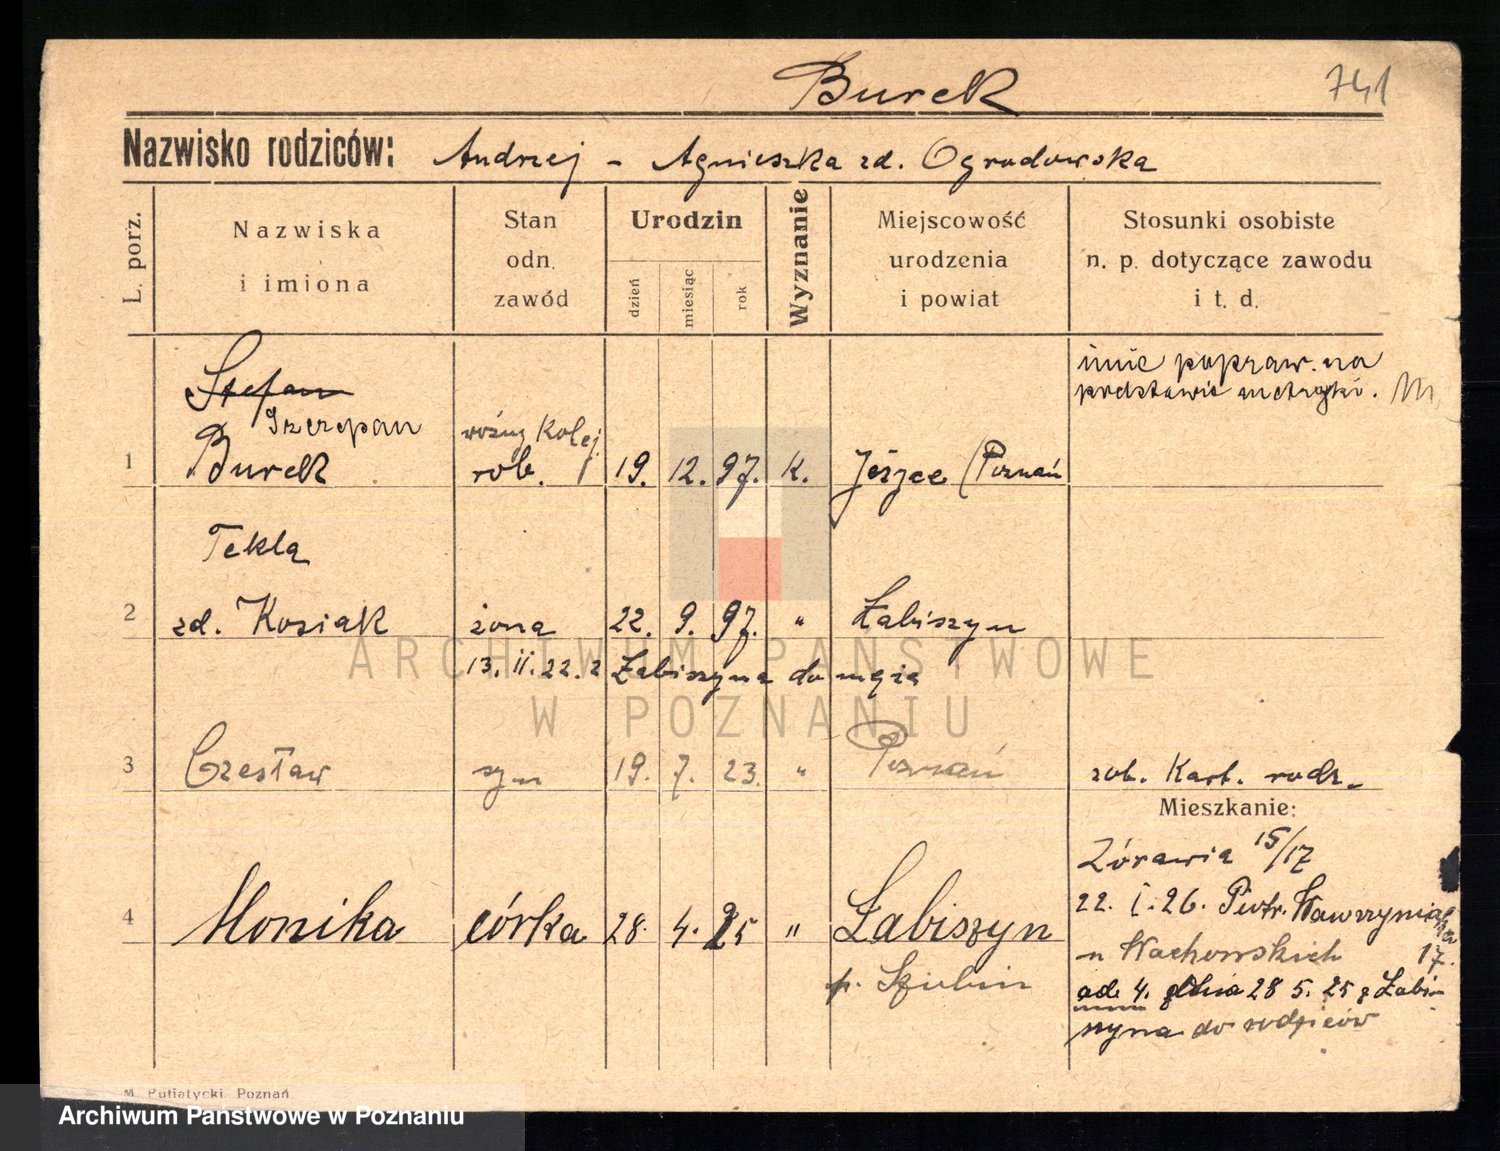 Burek 741
Nazwisko rodziców: Andrzej - Agnieszka zd. Ogrodowska
L. porz.
Nazwiska
i imiona
Stan
odn.
zawód
Urodzin
dzień
miesiąc
rok
Wyznanie
Miejscowość
urodzenia
i powiat
Stosunki osobiste
n. p. dotyczące zawodu
i t. d.
imię popraw. na
podstawie metryki.
Stefan
Szczepan
woźny Kolej.
1 Burek rob. 19. 12. 97. k. Jeżyce (Poznań
Tekla
2 zd. Kosiak żona 22. 9. 97. " Łabiszyn
13. II. 22. z Łabiszyna do męża
3 Czesław syn 19. 7. 23. " Poznań zob. Kart. rodz.
Mieszkanie:
Żórawia 15/17
22. I. 26. Piotr. Wawrzyniaka
4 Monika córka 28. 4. 25 " Łabiszyn
u Wachowskich 17.
p. Szubin
ad. 4. dnia 28 5. 25 z Łabi-
szyna do rodziców
M. Putiatycki, Poznań
ARCHIWUM PAŃSTWOWE
W POZNANIU
Archiwum Państwowe w Poznaniu